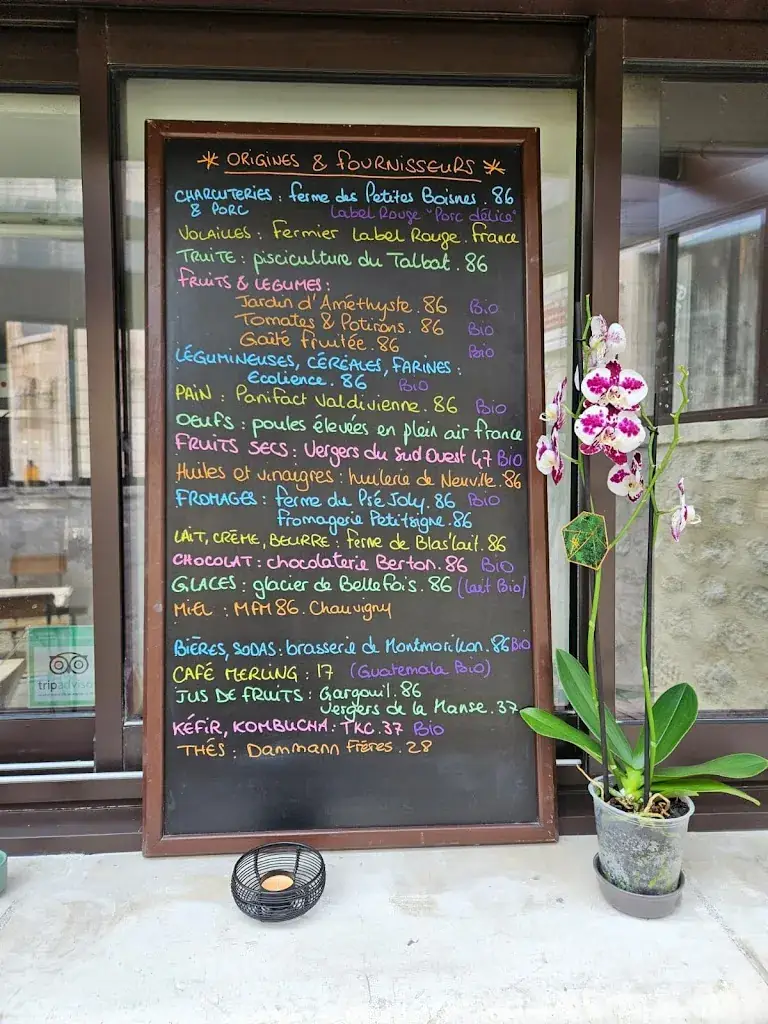 * ORIGINES & FOURNISSEURS *
CHARCUTERIES : ferme des Petites Boisnes . 86
& PORC Label Rouge "Porc délice"
VOLAILLES : Fermier Label Rouge . France
TRUITE : pisciculture du Talbat . 86
FRUITS & LEGUMES :
Jardin d'Améthyste . 86 Bio
Tomates & Potirons . 86 Bio
Gaité fruitée . 86 Bio
LÉGUMINEUSES, CÉRÉALES, FARINES :
Ecolience . 86 Bio
PAIN : Panifact Valdivienne . 86 Bio
OEUFS : poules élevées en plein air France
FRUITS SECS : Vergers du Sud Ouest 47 Bio
Huiles et vinaigres : huilerie de Neuville . 86
FROMAGES : ferme du Pré Joly . 86 Bio
fromagerie Petit'signe . 86
LAIT, CRÈME, BEURRE : ferme de Blas'lait . 86
CHOCOLAT : chocolaterie Berton . 86 Bio
GLACES : glacier de Bellefois . 86 (lait Bio)
MIEL : MFM 86 . Chauvigny
BIÈRES, SODAS : brasserie de Montmorillon . 86 Bio
CAFÉ MERLING : 17 (Guatemala Bio)
JUS DE FRUITS : Gargouil . 86
Vergers de la Manse . 37
KÉFIR, KOMBUCHA : TKC . 37 Bio
THÉS : Dammann Frères . 28
tripadvisor